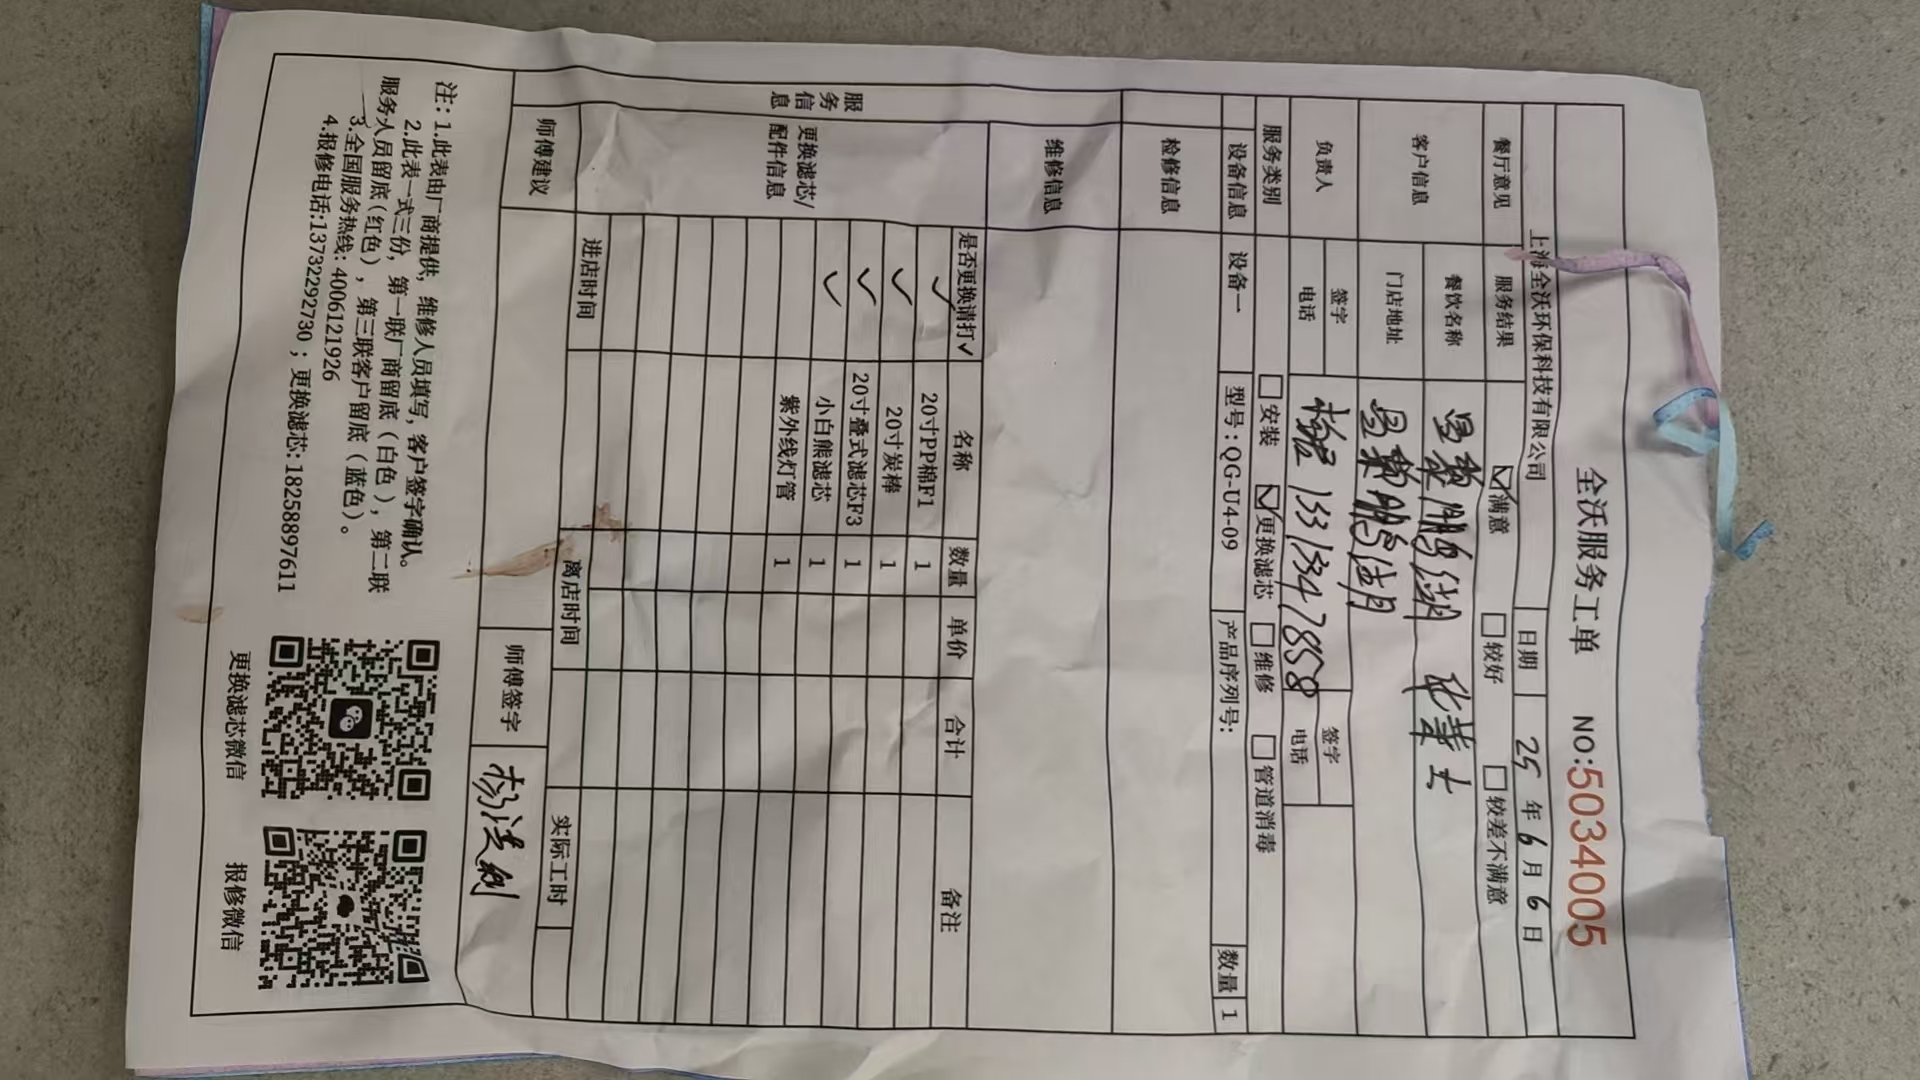 全沃服务工单 NO:50340005
上海全沃环保科技有限公司 日期 25年6月6日
餐厅意见 服务结果 ☑满意 □较好 □较差不满意
客户信息 餐饮名称
门店地址
负责人 签字 电话 13313478558 签字 电话
服务类别 □安装 ☑更换滤芯 □维修 □管道消毒
设备信息 设备一 型号:QG-U4-09 产品序列号: 数量 1
服务信息
检修信息
维修信息
更换滤芯/配件信息
是否更换请打✓ 名称 数量 单价 合计 备注
✓ 20寸PP棉F1 1
✓ 20寸炭棒 1
✓ 20寸叠式滤芯F3 1
✓ 小白熊滤芯 1
紫外线灯管 1
进店时间 离店时间 实际工时
师傅建议 师傅签字
注: 1.此表由厂商提供, 维修人员填写, 客户签字确认。
2.此表一式三份, 第一联厂商留底(白色), 第二联
服务人员留底(红色), 第三联客户留底(蓝色)。
3.全国服务热线: 4006121926
4.报修电话:13732292730 ; 更换滤芯: 18258897611
更换滤芯微信 报修微信